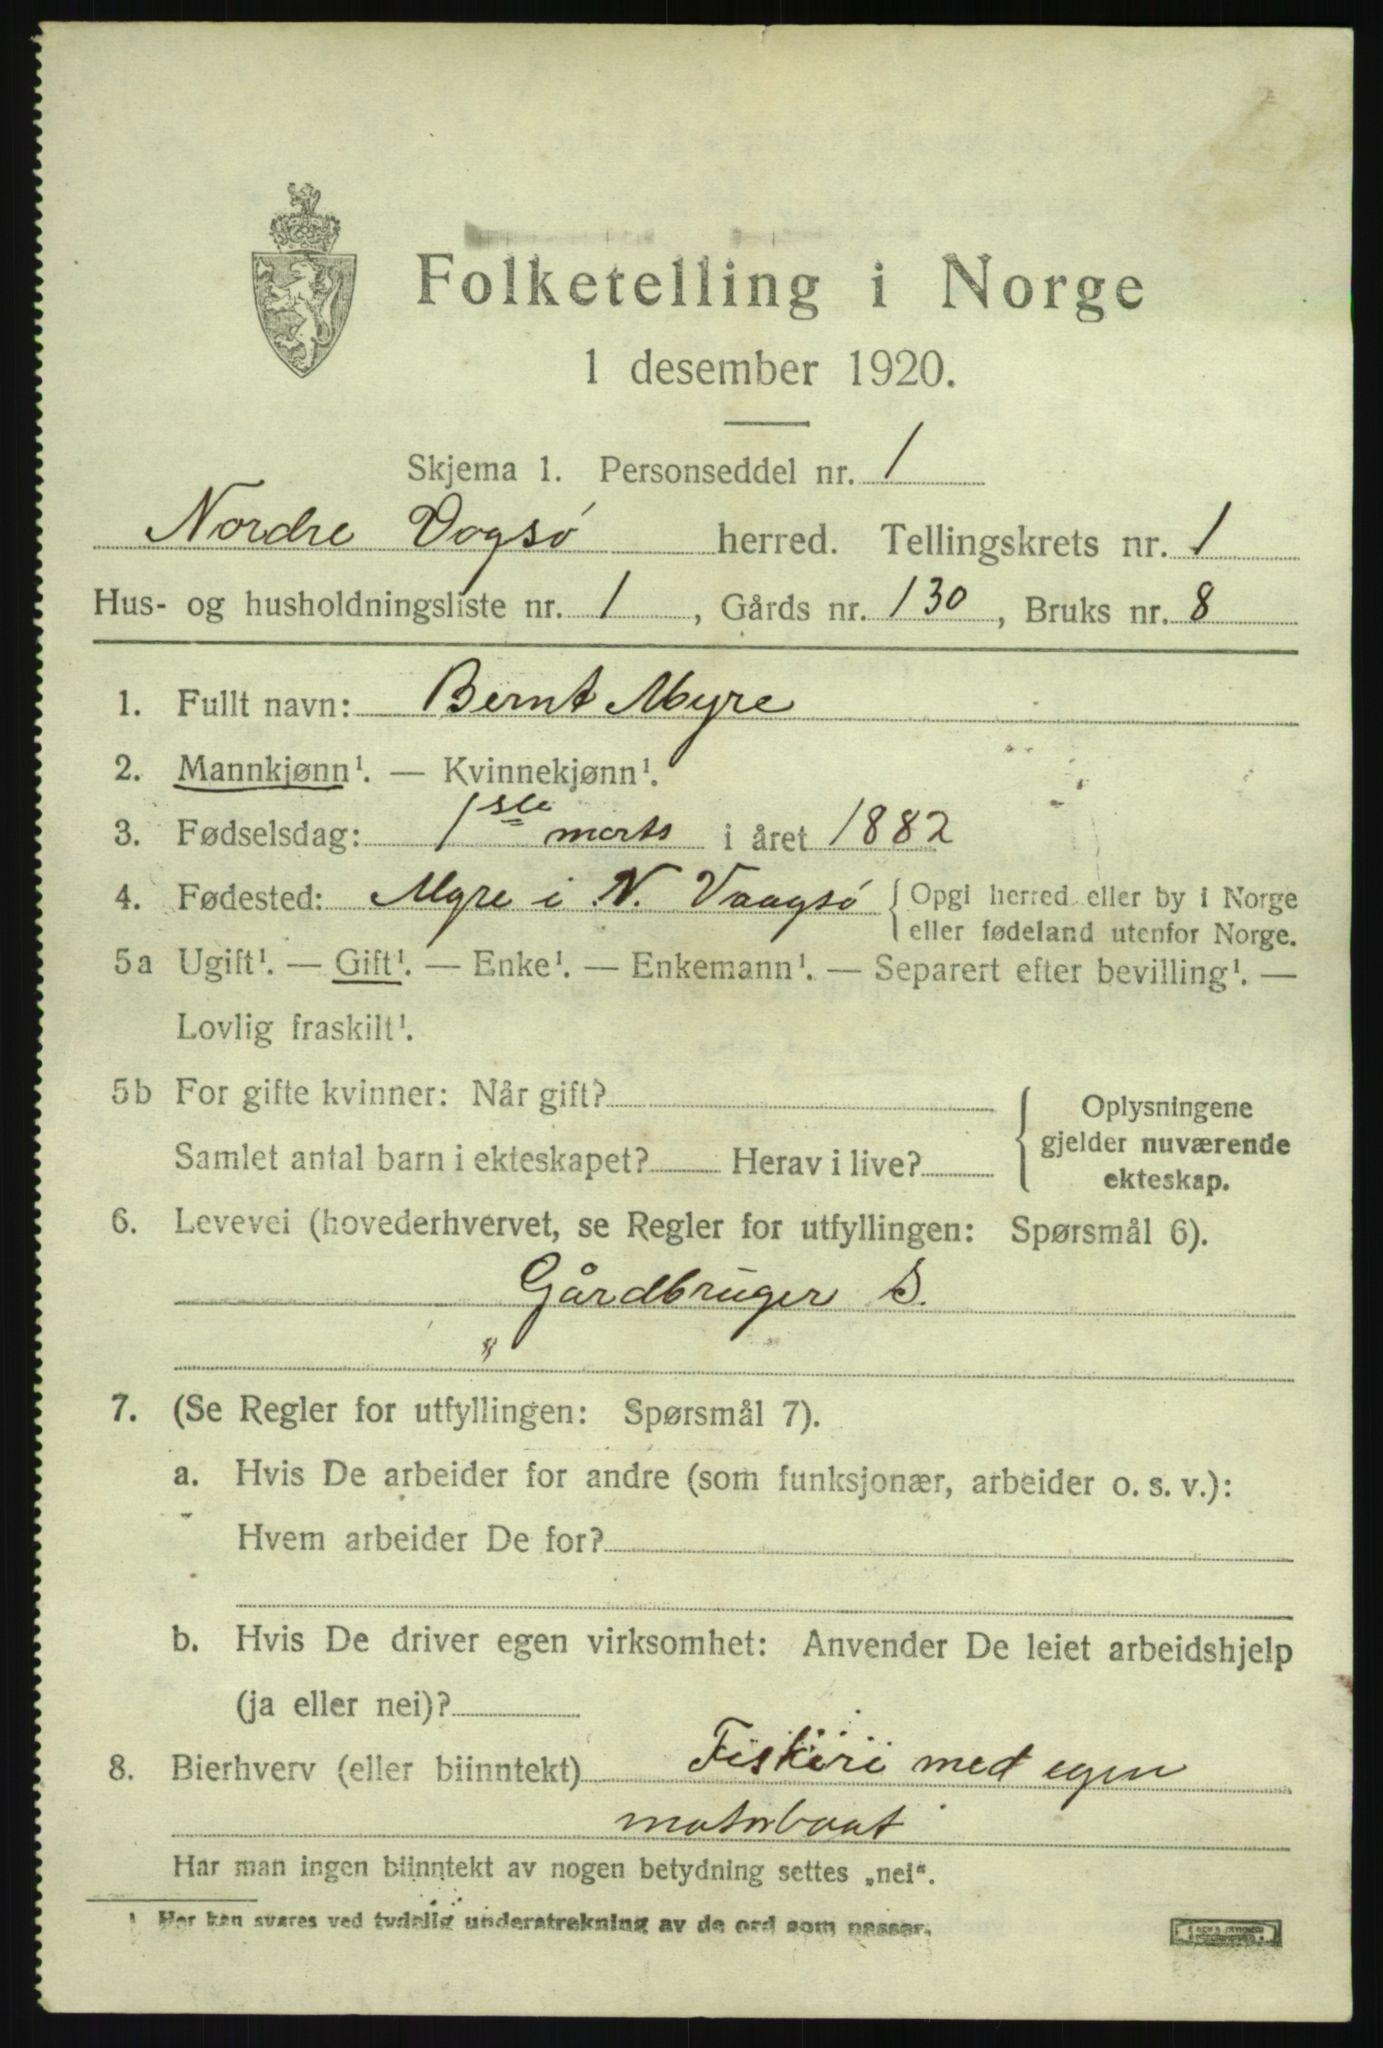 Folketelling i Norge
1 desember 1920.
Skjema 1. Personseddel nr. 1
Nordre Vogsø herred. Tellingskrets nr. 1
Hus- og husholdningsliste nr. 1, Gårds nr. 130, Bruks nr. 8
1. Fullt navn: Bernt Myre
2. Mannkjønn¹. — Kvinnekjønn¹.
3. Fødselsdag: 1ste marts i året 1882
4. Fødested: Myre i N. Vaagsø { Opgi herred eller by i Norge
eller fødeland utenfor Norge.
5a Ugift¹. — Gift¹. — Enke¹. — Enkemann¹. — Separert efter bevilling¹. —
Lovlig fraskilt¹.
5b For gifte kvinner: Når gift?
Samlet antal barn i ekteskapet? Herav i live?
{ Oplysningene
gjelder nuværende
ekteskap.
6. Levevei (hovederhvervet, se Regler for utfyllingen: Spørsmål 6).
Gårdbruger S.
7. (Se Regler for utfyllingen: Spørsmål 7).
a. Hvis De arbeider for andre (som funksjonær, arbeider o. s. v.):
Hvem arbeider De for?
b. Hvis De driver egen virksomhet: Anvender De leiet arbeidshjelp
(ja eller nei)?
8. Bierhverv (eller biinntekt) Fiskeri med egen
motorbaat
Har man ingen biinntekt av nogen betydning settes „nei“.
¹ Her kan svares ved tydelig understrekning av de ord som passer.